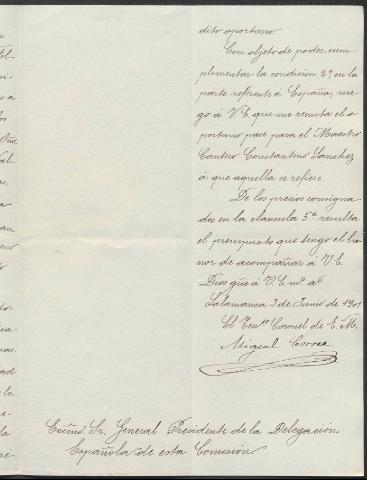 dito oportuno.
Con objeto de poder cum-
plimentar la condicion 2ª en la
parte referente á España, rue-
go á V.E. que me remita el o-
portuno pase para el Maestro
Cantero Constantino Sanchez
á que aquella se refiere.
De los precios consigna
dos en la clausula 5ª resulta
el presupuesto que tengo el ho-
nor de acompañar á V.E.
Dios güe á V.E. mˢ aˢ
Salamanca 3 de Junio de 1901
El Tenᵗᵉ Coronel de E.M.
Miguel Correa
Excmo. Sr. General Presidente de la Delegación
Española de esta Comisión.